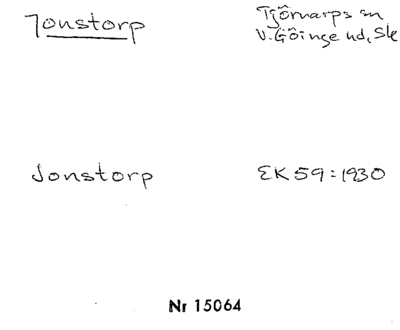 Jonstorp
Tjörnarps sn
V. Göinge hd, Sk
Jonstorp
EK 59 : 1930
Nr 15064